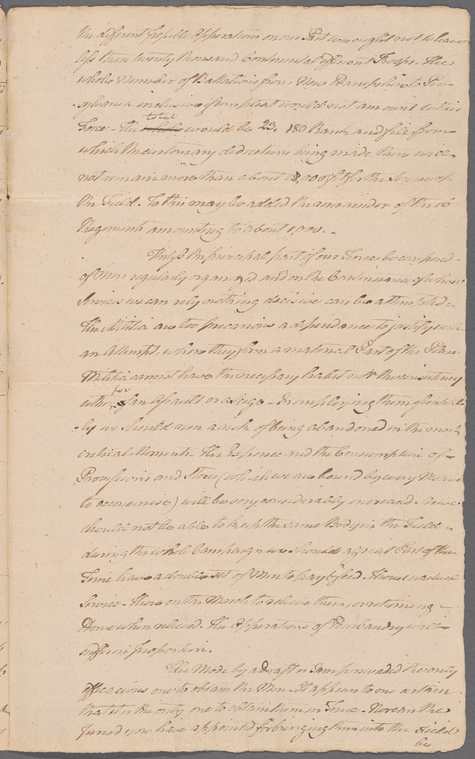 the different possible Operations on our Part we ought not to have
less than twenty thousand Continental efficient Troops. The
whole Number of Battalions from New Hampshire to Pen-
sylvania inclusive if compleat would not amount to this
Force - the total would be 23,180 Rank and file from
which the customary deductions being made there will
not remain more than about 18,000 fit for the Service of
the Field. To this may be added the remainder of the 16
Regiments amounting to about 1,000. -
Unless the principal part of our Force be composed -
of Men regularly organized and on the Continuance of whose
Services we can rely nothing decisive can be attempted.
The Militia are too precarious a dependance to justify such
an attempt, where they form a material Part of the Plan.
Militia cannot have the necessary habits nor the consistency
either for an assault or a siege. In employing them
-ly we should run a risk of being abandoned in the most
critical Moments. The Expence and the Consumption of -
Provisions and Stores (which we are bound by every Motive
to œconomise) will be very considerably increased. As we
should not be able to keep the same Body in the Field -
during the whole Campaign we should a great Part of the
Time have a double set of Men to pay & feed. Those in actual
Service. Those on the March to relieve them, or returning -
Home when relieved. The Operations of Husbandry will
suffer in proportion.
The Mode by a draft is I am persuaded the only
efficacious one to obtain the Men. It appears to me certain
that it is the only one to obtain them in Time. Nor can the
Period you have appointed for bringing them into the Field
be